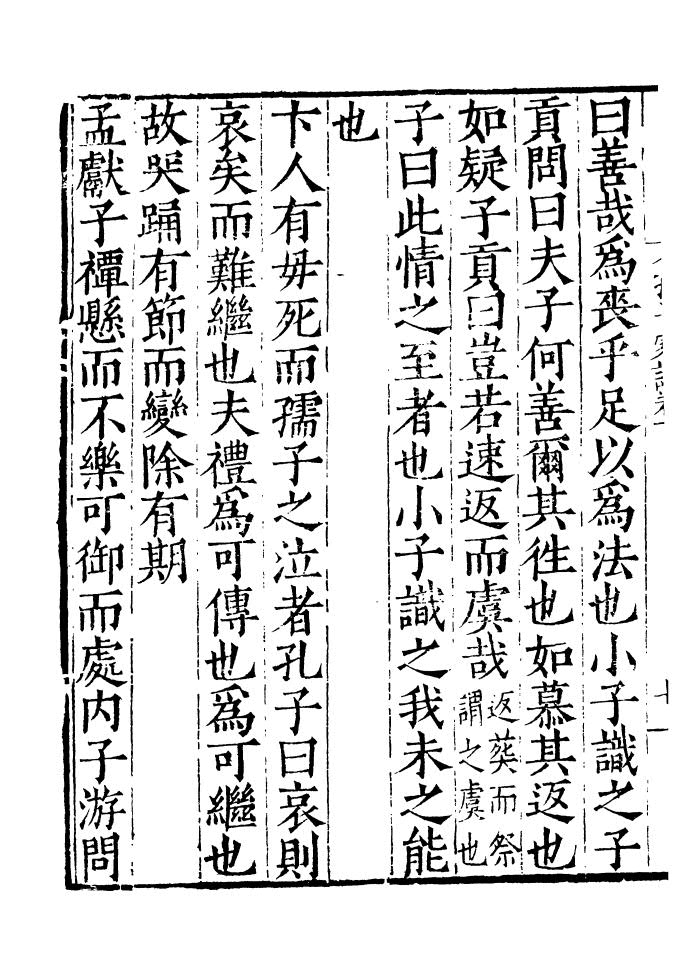 曰善哉爲喪乎足以爲法也小子識之子
貢問曰夫子何善爾其徃也如慕其返也
如疑子貢曰豈若速返而虞哉返葬而祭謂之虞也
子曰此情之至者也小子識之我未之能
也
卞人有毋死而孺子之泣者孔子曰哀則
哀矣而難繼也夫禮爲可傳也爲可繼也
故哭踊有節而變除有期
孟獻子禫懸而不樂可御而處内子游問